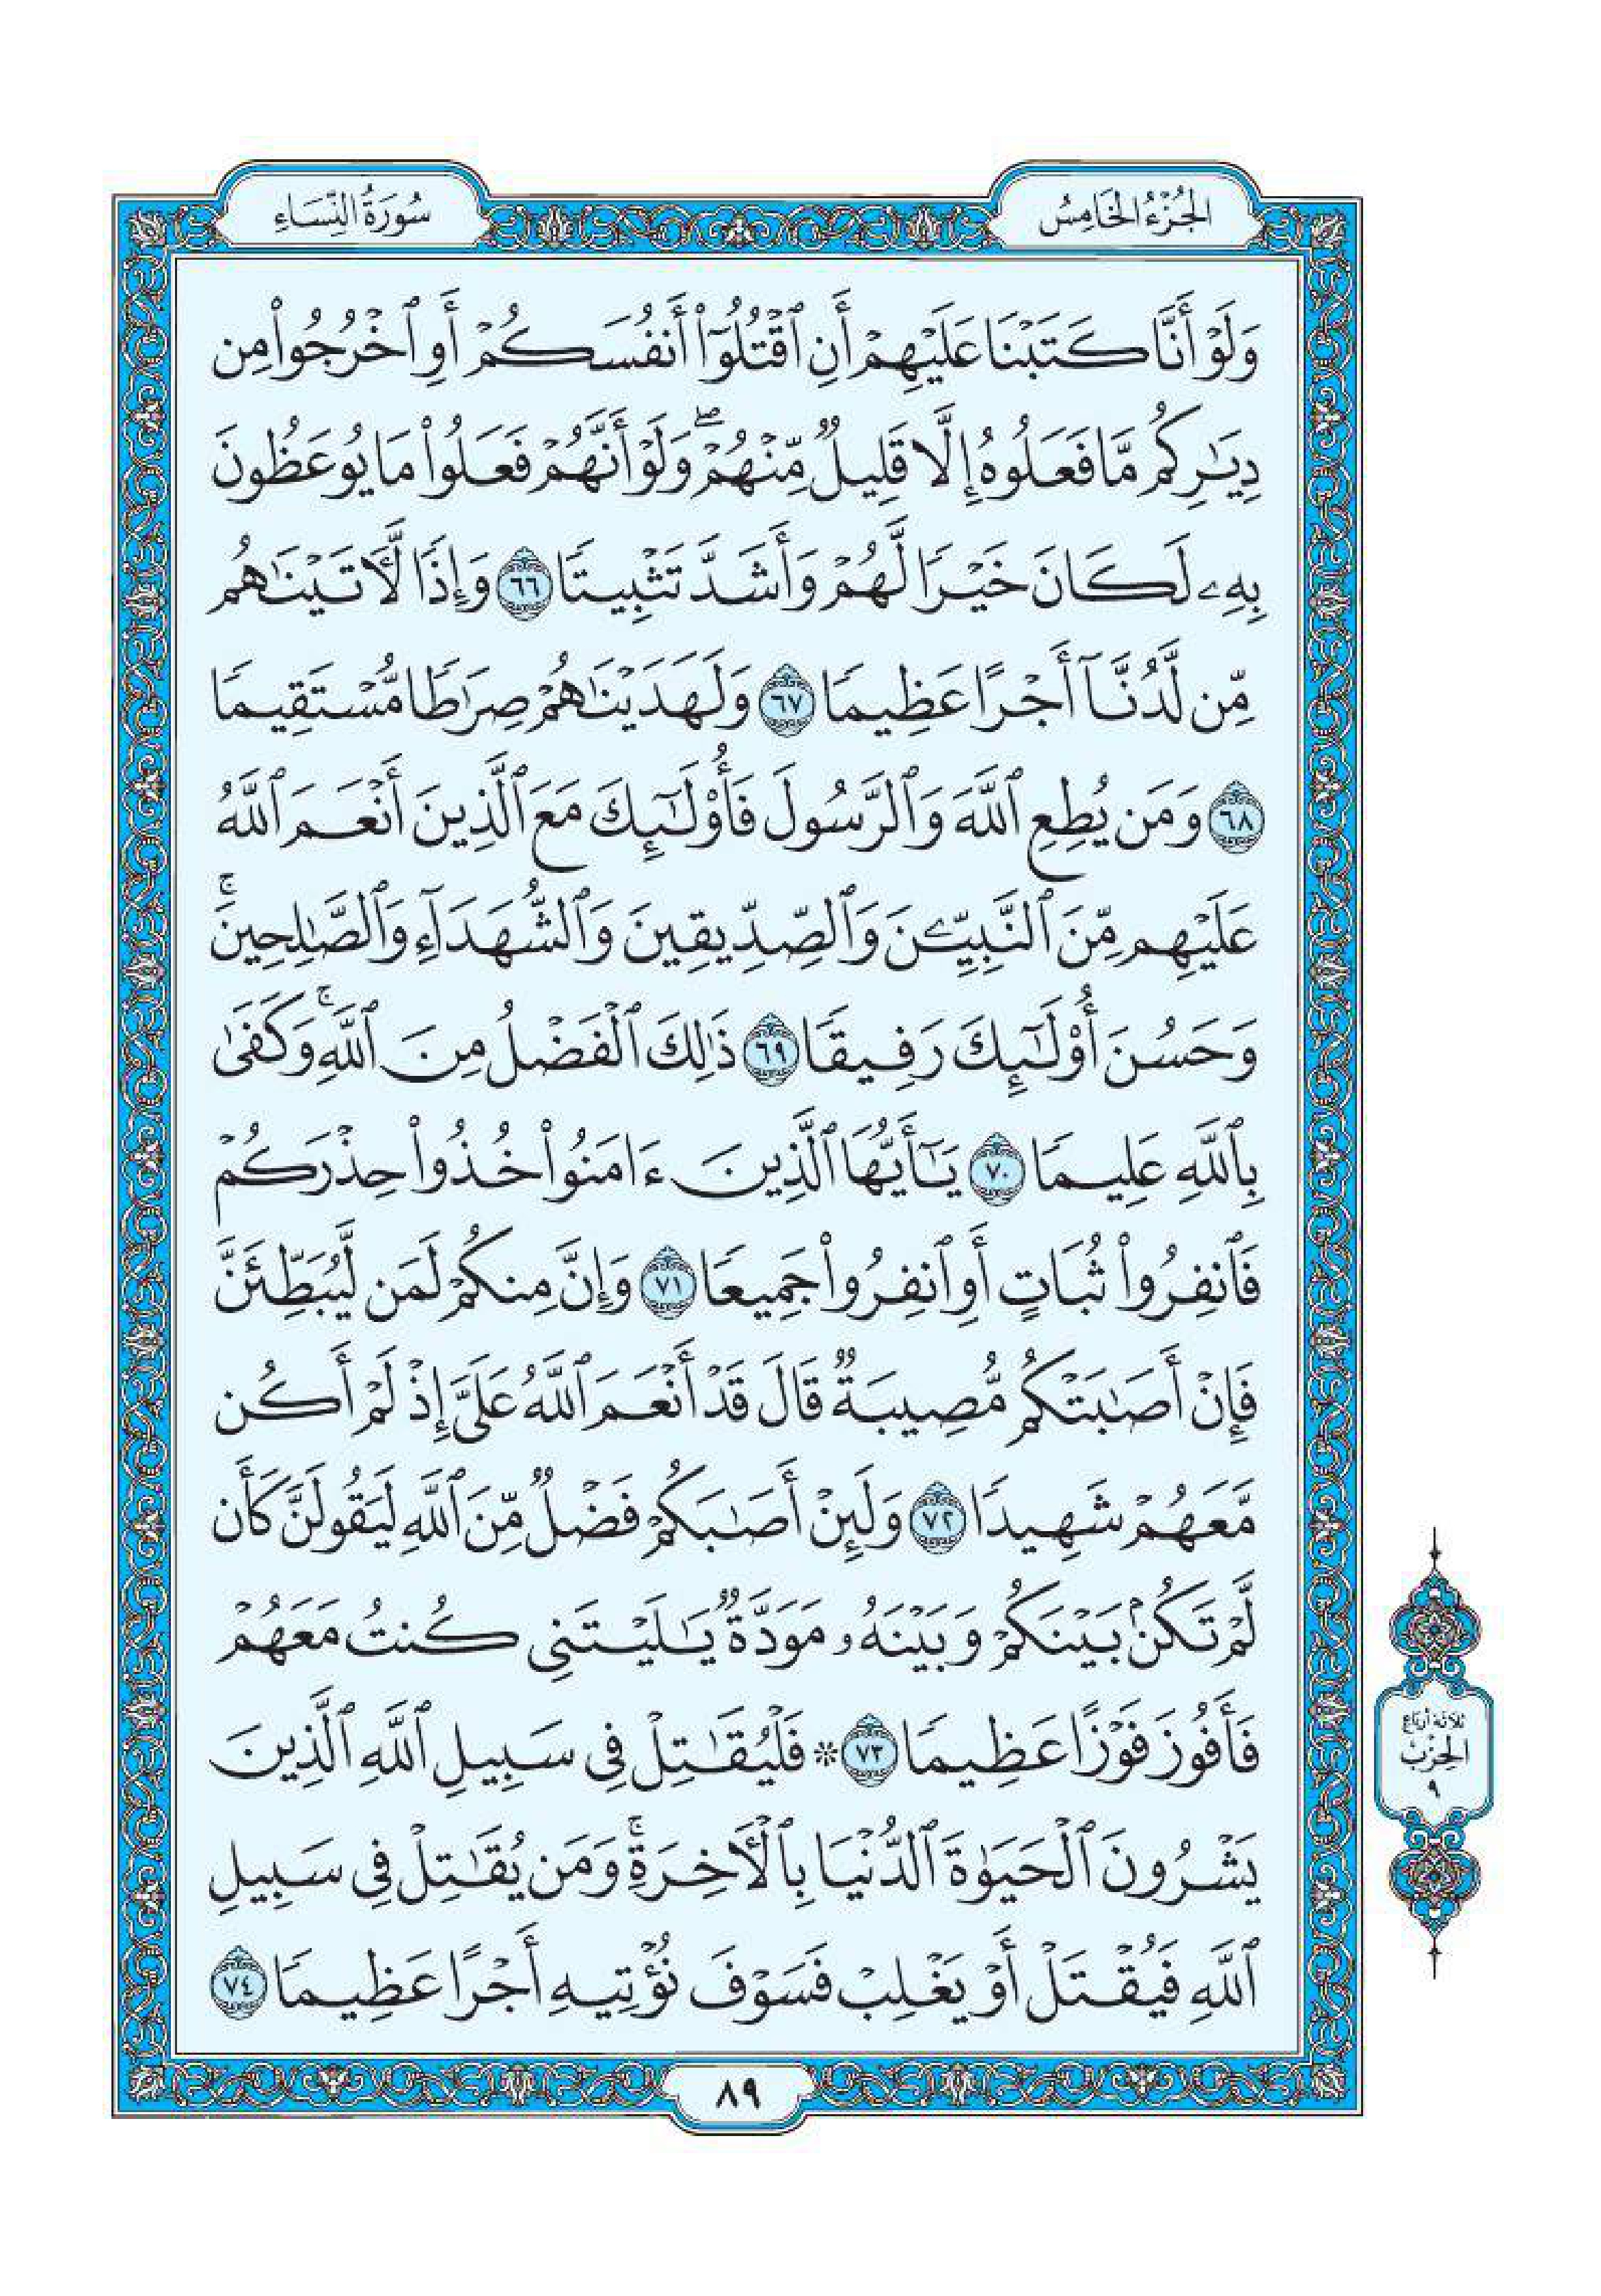 الجُزْءُ الخَامِسُ
سُورَةُ النِّسَاءِ
وَلَوۡ أَنَّا كَتَبۡنَا عَلَيۡهِمۡ أَنِ ٱقۡتُلُوٓاْ أَنفُسَكُمۡ أَوِ ٱخۡرُجُواْ مِن
دِيَٰرِكُم مَّا فَعَلُوهُ إِلَّا قَلِيلٞ مِّنۡهُمۡۖ وَلَوۡ أَنَّهُمۡ فَعَلُواْ مَا يُوعَظُونَ
بِهِۦ لَكَانَ خَيۡرٗا لَّهُمۡ وَأَشَدَّ تَثۡبِيتٗا ٦٦ وَإِذٗا لَّأٓتَيۡنَٰهُم
مِّن لَّدُنَّآ أَجۡرًا عَظِيمٗا ٦٧ وَلَهَدَيۡنَٰهُمۡ صِرَٰطٗا مُّسۡتَقِيمٗا
٦٨ وَمَن يُطِعِ ٱللَّهَ وَٱلرَّسُولَ فَأُوْلَٰٓئِكَ مَعَ ٱلَّذِينَ أَنۡعَمَ ٱللَّهُ
عَلَيۡهِم مِّنَ ٱلنَّبِيِّـۧنَ وَٱلصِّدِّيقِينَ وَٱلشُّهَدَآءِ وَٱلصَّٰلِحِينَۚ
وَحَسُنَ أُوْلَٰٓئِكَ رَفِيقٗا ٦٩ ذَٰلِكَ ٱلۡفَضۡلُ مِنَ ٱللَّهِۚ وَكَفَىٰ
بِٱللَّهِ عَلِيمٗا ٧٠ يَٰٓأَيُّهَا ٱلَّذِينَ ءَامَنُواْ خُذُواْ حِذۡرَكُمۡ
فَٱنفِرُواْ ثُبَاتٍ أَوِ ٱنفِرُواْ جَمِيعٗا ٧١ وَإِنَّ مِنكُمۡ لَمَن لَّيُبَطِّئَنَّ
فَإِنۡ أَصَٰبَتۡكُم مُّصِيبَةٞ قَالَ قَدۡ أَنۡعَمَ ٱللَّهُ عَلَيَّ إِذۡ لَمۡ أَكُن
مَّعَهُمۡ شَهِيدٗا ٧٢ وَلَئِنۡ أَصَٰبَكُمۡ فَضۡلٞ مِّنَ ٱللَّهِ لَيَقُولَنَّ كَأَن
لَّمۡ تَكُنۢ بَيۡنَكُمۡ وَبَيۡنَهُۥ مَوَدَّةٞ يَٰلَيۡتَنِي كُنتُ مَعَهُمۡ
فَأَفُوزَ فَوۡزًا عَظِيمٗا ٧٣ ۞ فَلۡيُقَٰتِلۡ فِي سَبِيلِ ٱللَّهِ ٱلَّذِينَ
يَشۡرُونَ ٱلۡحَيَوٰةَ ٱلدُّنۡيَا بِٱلۡأٓخِرَةِۚ وَمَن يُقَٰتِلۡ فِي سَبِيلِ
ٱللَّهِ فَيُقۡتَلۡ أَوۡ يَغۡلِبۡ فَسَوۡفَ نُؤۡتِيهِ أَجۡرًا عَظِيمٗا ٧٤
ثلاثة أرباع
الحِزْب
٩
٨٩